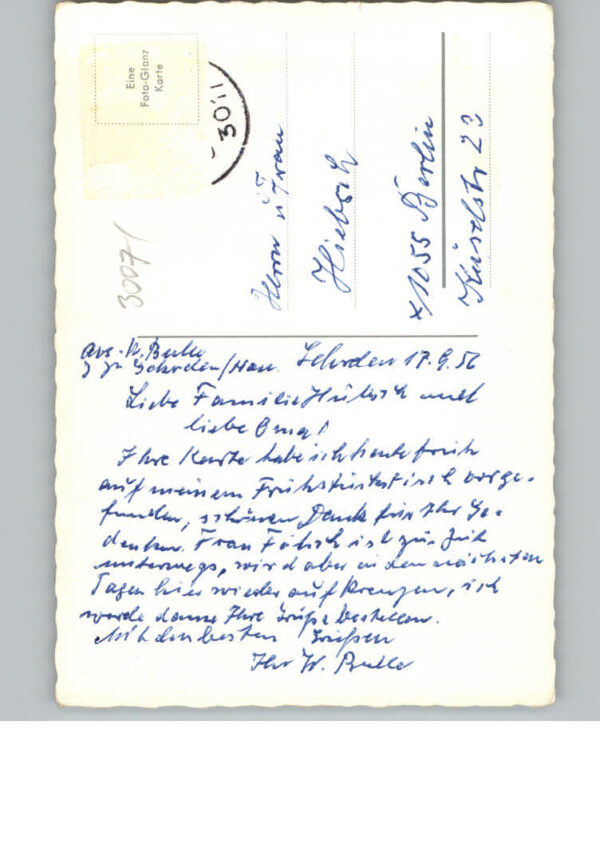 Eine
Foto-Glanz
Karte
30.11
3007/
Herrn u Frau
Hiebsch
x1055 Berlin
23
Abs. W. Bulle
z. Zt. Gehrden/Han. Gehrden 17.9.56
Liebe Familie Hübsch und
liebe Oma!
Ihre Karte habe ich heute früh
auf meinem Frühstückstisch vorge-
funden, schönen Dank für Ihr Ge-
denken. Frau ist zur Zeit
unterwegs, wird aber in den nächsten
Tagen hier wieder aufkreuzen, ich
werde dann Ihre Grüße bestellen.
Mit den besten Grüßen
Ihr W. Bulle